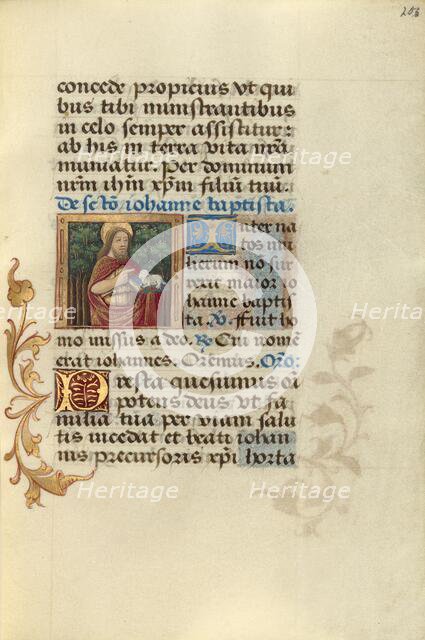 203
concede propicius vt qui
bus tibi ministrantibus
in celo semper assistitur:
ab his in terra vita nrā
muniatur. Per dominum
nrm ihm xpm filiū tuū.
De scto iohanne baptista.
Inter na
tos mu
lierum no sur
rexit maior io
hanne baptis
ta. Vo. ffuit ho
mo missus a deo. Re Cui nomē
erat iohannes. Oremus. Oro:
Presta quesumus oi
potens deus vt fa
milia tua per viam salu
tis incedat et beati iohan
nis precursoris xpi horta
Heritage
Heritage
Heritage
Heritage
Heritage
Heritage